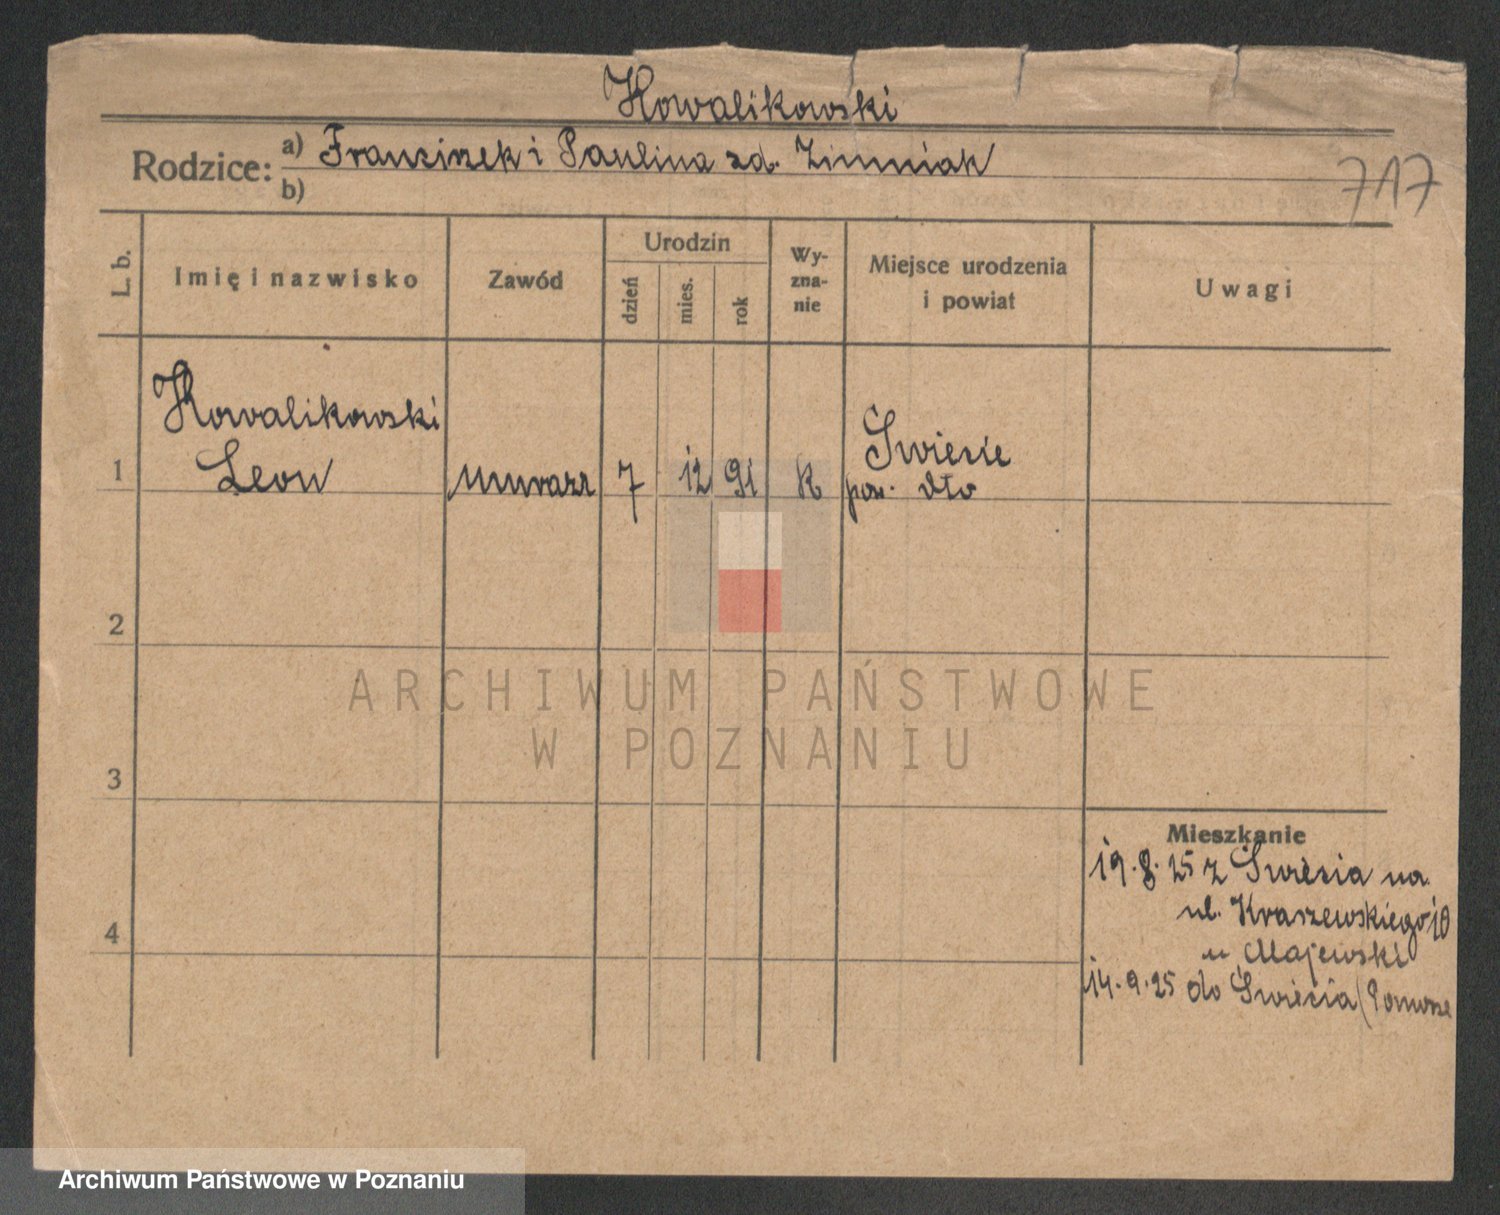 Kowalikowski
Rodzice: a) Franciszek i Paulina zd. Zimniak
b)
717
L. b.
Imię i nazwisko
Zawód
Urodzin
dzień
mies.
rok
Wy-
zna-
nie
Miejsce urodzenia
i powiat
Uwagi
Kowalikowski
1 Leon murarz 7 12 91 K Świecie
pow. dto
2
3
4
ARCHIWUM PAŃSTWOWE
W POZNANIU
Mieszkanie
19.8.25 z Świecia na
ul. Kraszewskiego 10
u Majewski
14.9.25 do Świecia (Pomorze
Archiwum Państwowe w Poznaniu